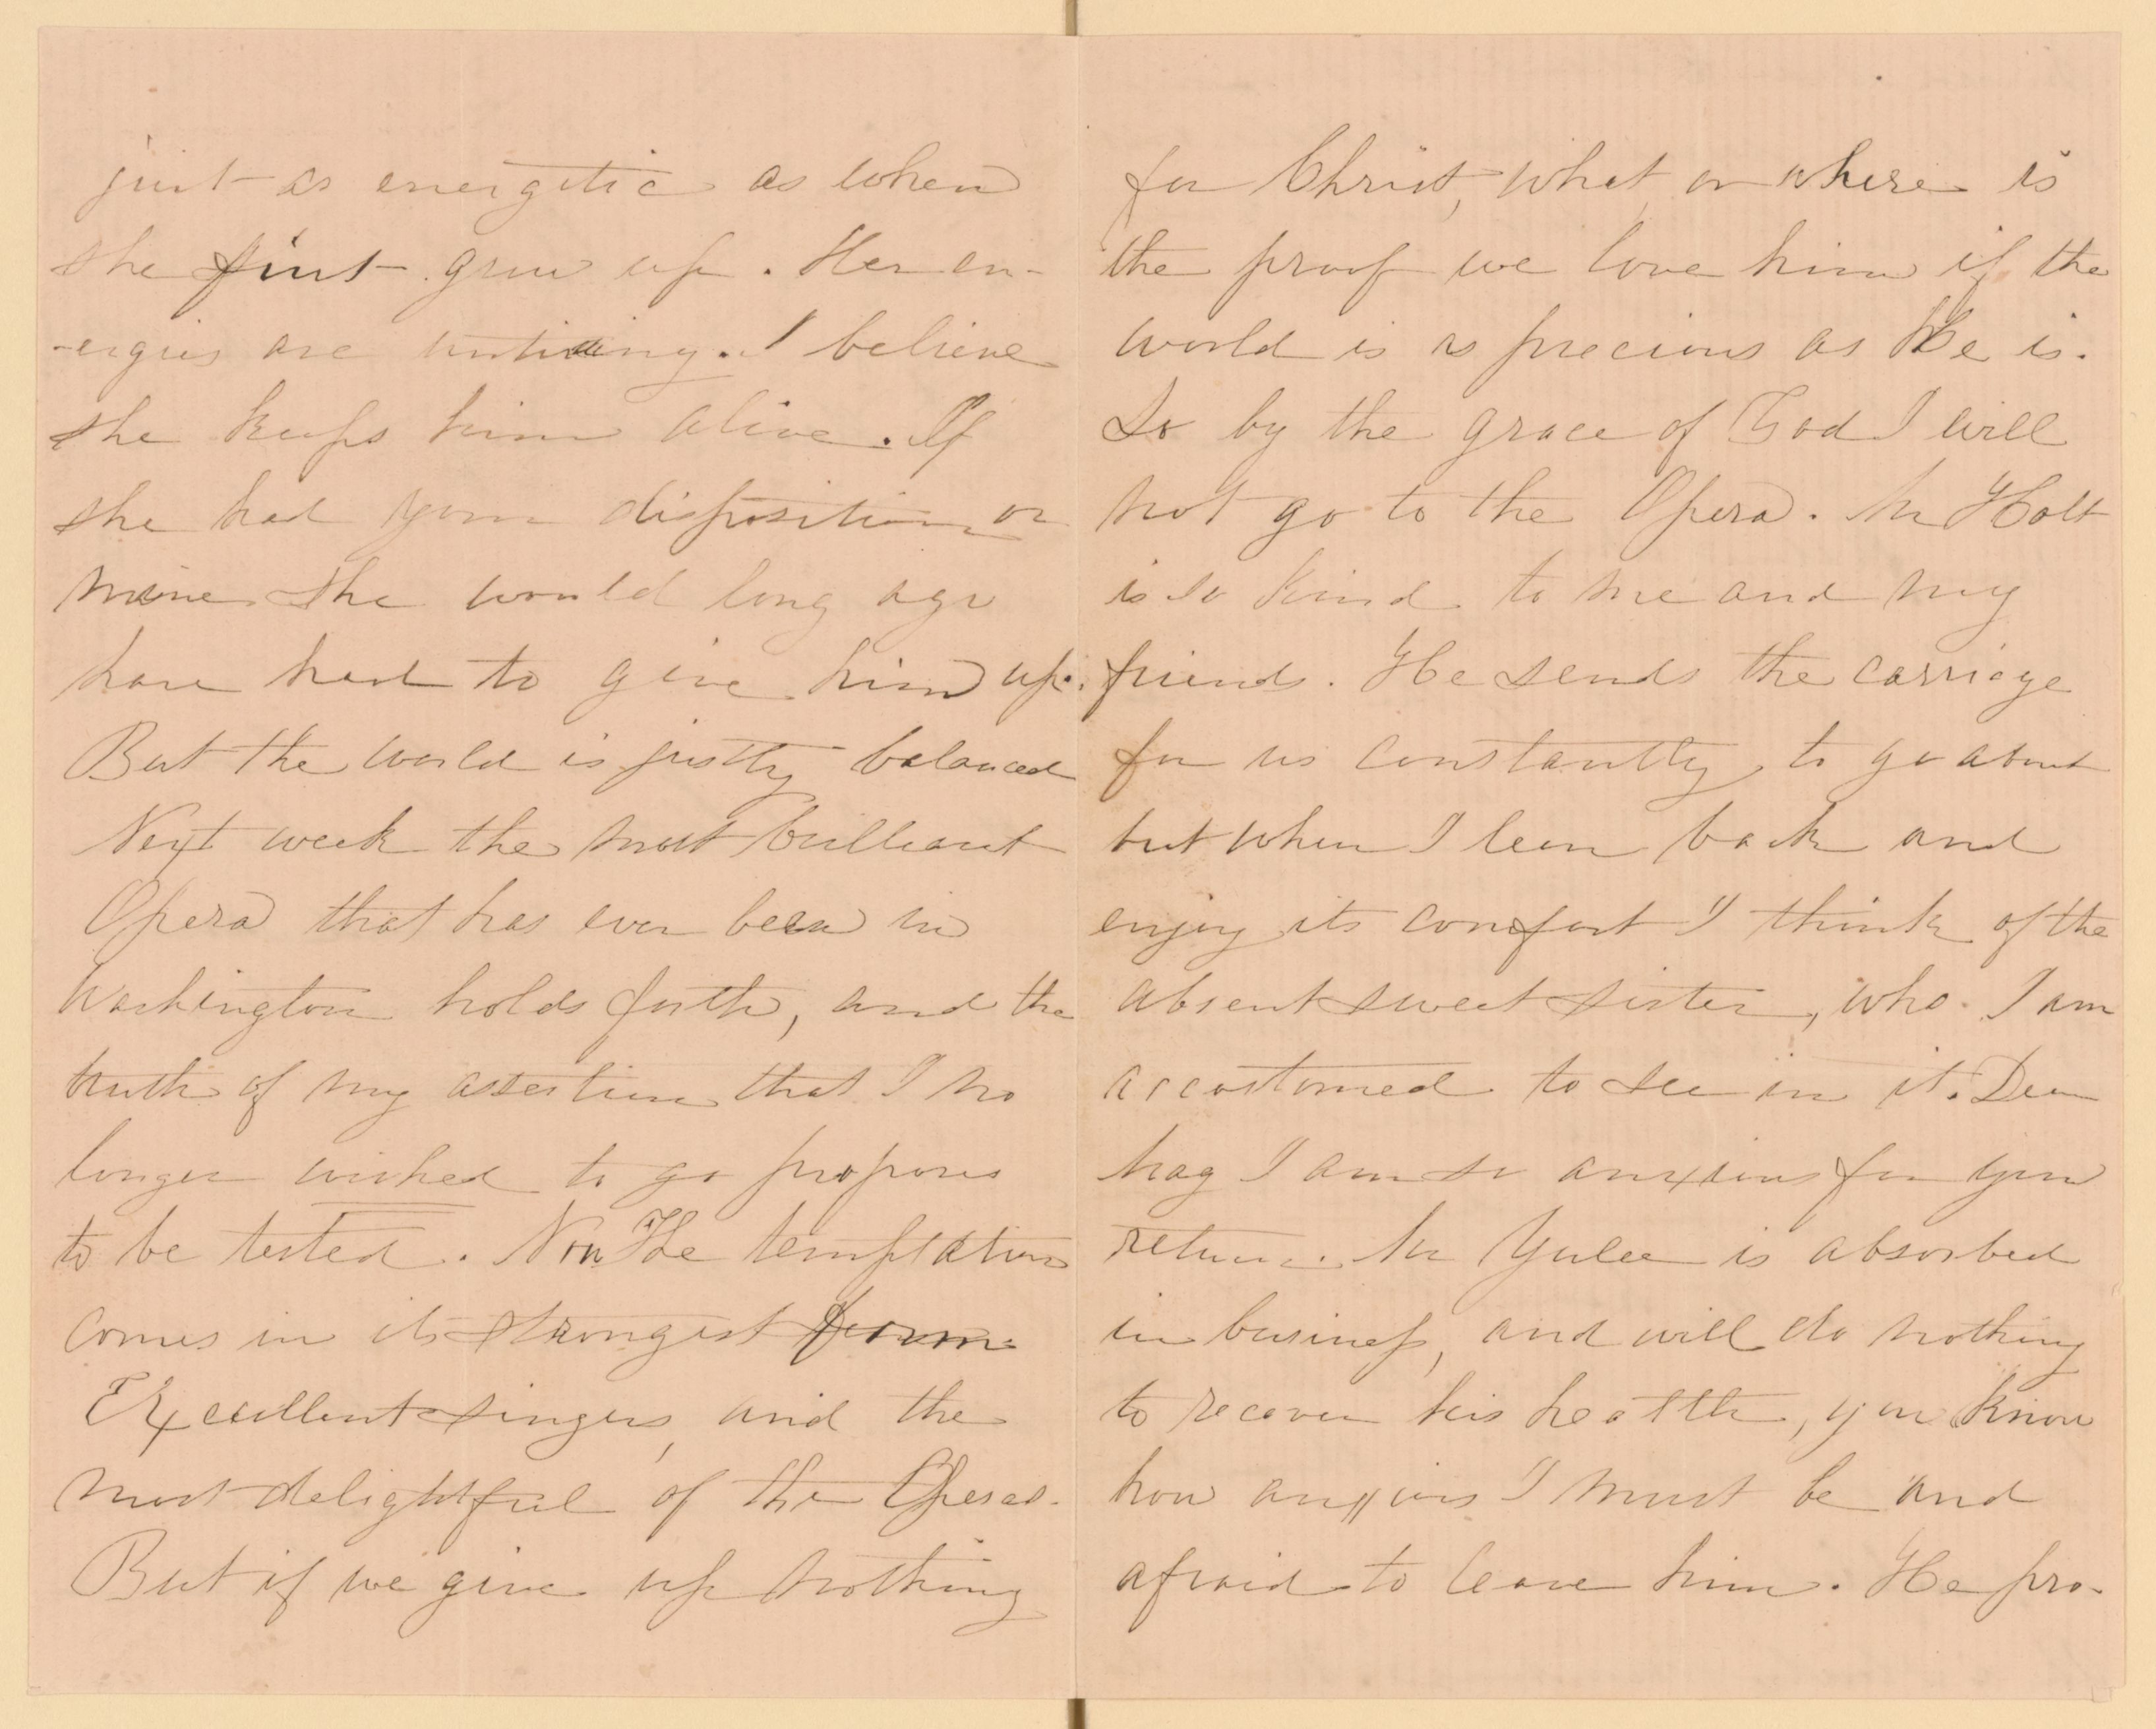 just as energetic as when
she first grew up. Her en-
-ergies are untiring. I believe
she keeps him alive. If
she had your disposition or
mine she would long ago
have had to give him up.
But the world is justly balanced
Next week the most brilliant
Opera that has ever been in
Washington holds forth, and the
truth of my assertion that I no
longer wished to go proposes
to be tested. Now The temptation
comes in its strongest form
Excellent singers, and the
most delightful of the Operas.
But if we give up nothing
for Christ, what or where is
the proof we love him if the
world is as precious as He is.
So by the grace of God I will
not go to the Opera. Mr Holt
is so kind to me and my
friends. He sends the carriage
for us constantly, to go about
but when I lean back and
enjoy its comfort I think of the
absent sweet sister, who I am
accostomed to see in it. Dear
Mag I am so anxious for your
return. Mr Yulee is absorbed
in business, and will do nothing
to recover his health, you know
how anxious I must be and
afraid to leave him. He pro-